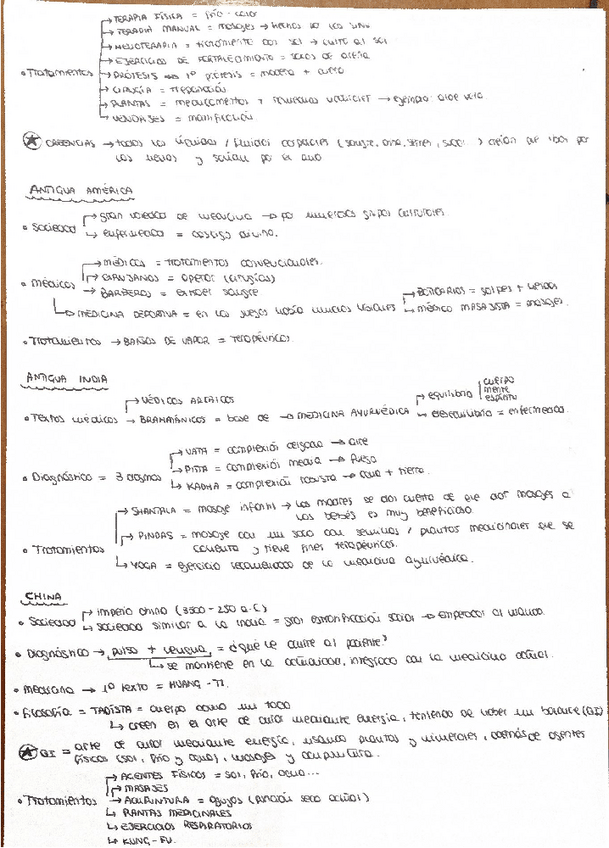 → TERAPIA FÍSICA = frío - calor
→ TERAPIA MANUAL = masajes → hechos por los SUNU
→ HELIOTERAPIA = tratamiento con sol → culto al sol
→ EJERCICIOS DE FORTALECIMIENTO = sacos de arena
• Tratamientos → PRÓTESIS → 1ª prótesis = madera + cuero
→ CIRUGÍA = trepanación
→ PLANTAS = medicamentos + → ejemplo: aloe vera
→ VENDAJES = momificación.
CREENCIAS → todos los líquidos / fluidos corporales (sangre, orina, semen, sudor...) creían que iban por
los y salían por el ano.
ANTIGUA AMÉRICA
• Sociedad → gran variedad de medicina → por numerosos grupos culturales.
→ enfermedad = castigo divino.
→ MÉDICOS = tratamientos convencionales.
• MÉDICOS → CIRUJANOS = operar (cirugías)
→ BARBEROS = extraer sangre
→ MEDICINA DEPORTIVA = en los juegos había muchas lesiones → = golpes + heridas
→ MÉDICO MASAJISTA = masajes.
• Tratamientos → BAÑOS DE VAPOR = TERAPÉUTICOS.
ANTIGUA INDIA
→ VÉDICOS ARCAICOS → equilibrio cuerpo mente espíritu
• Textos médicos → BRAHMÁNICOS = base de → MEDICINA AYURVÉDICA → desequilibrio = enfermedad.
→ VATA = complexión delgada → aire
• Diagnóstico = 3 → PITTA = complexión media → fuego
→ KAPHA = complexión robusta → agua + tierra.
→ SHANTALA = masaje infantil → las madres se dan cuenta de que dar masajes a
los bebés es muy beneficioso.
→ PINDAS = masaje con un saco con semillas / plantas medicinales que se
calienta y tiene fines terapéuticos.
• Tratamientos
→ YOGA = ejercicio recomendado de la medicina ayurvédica.
CHINA
→ imperio chino (3500 - 250 a.C)
• Sociedad → sociedad similar a la India = gran estratificación social → emperador al mando.
• Diagnóstico → pulso + lengua = ¿qué le ocurre al paciente?
→ se mantiene en la actualidad, integrado con la medicina actual.
• Medicina → 1º texto = HUANG - TI.
• Filosofía = TAOÍSTA = cuerpo como un todo
→ creen en el arte de curar mediante energía, teniendo de haber un balance (QI)
QI = arte de curar mediante energía, usando plantas y minerales, además de agentes
físicos (sol, frío y agua), masajes y acupuntura.
→ AGENTES FÍSICOS = sol, frío, agua...
→ MASAJES
• Tratamientos → ACUPUNTURA = agujas (punción seca actual)
→ PLANTAS MEDICINALES
→ EJERCICIOS RESPIRATORIOS
→ KUNG - FU.